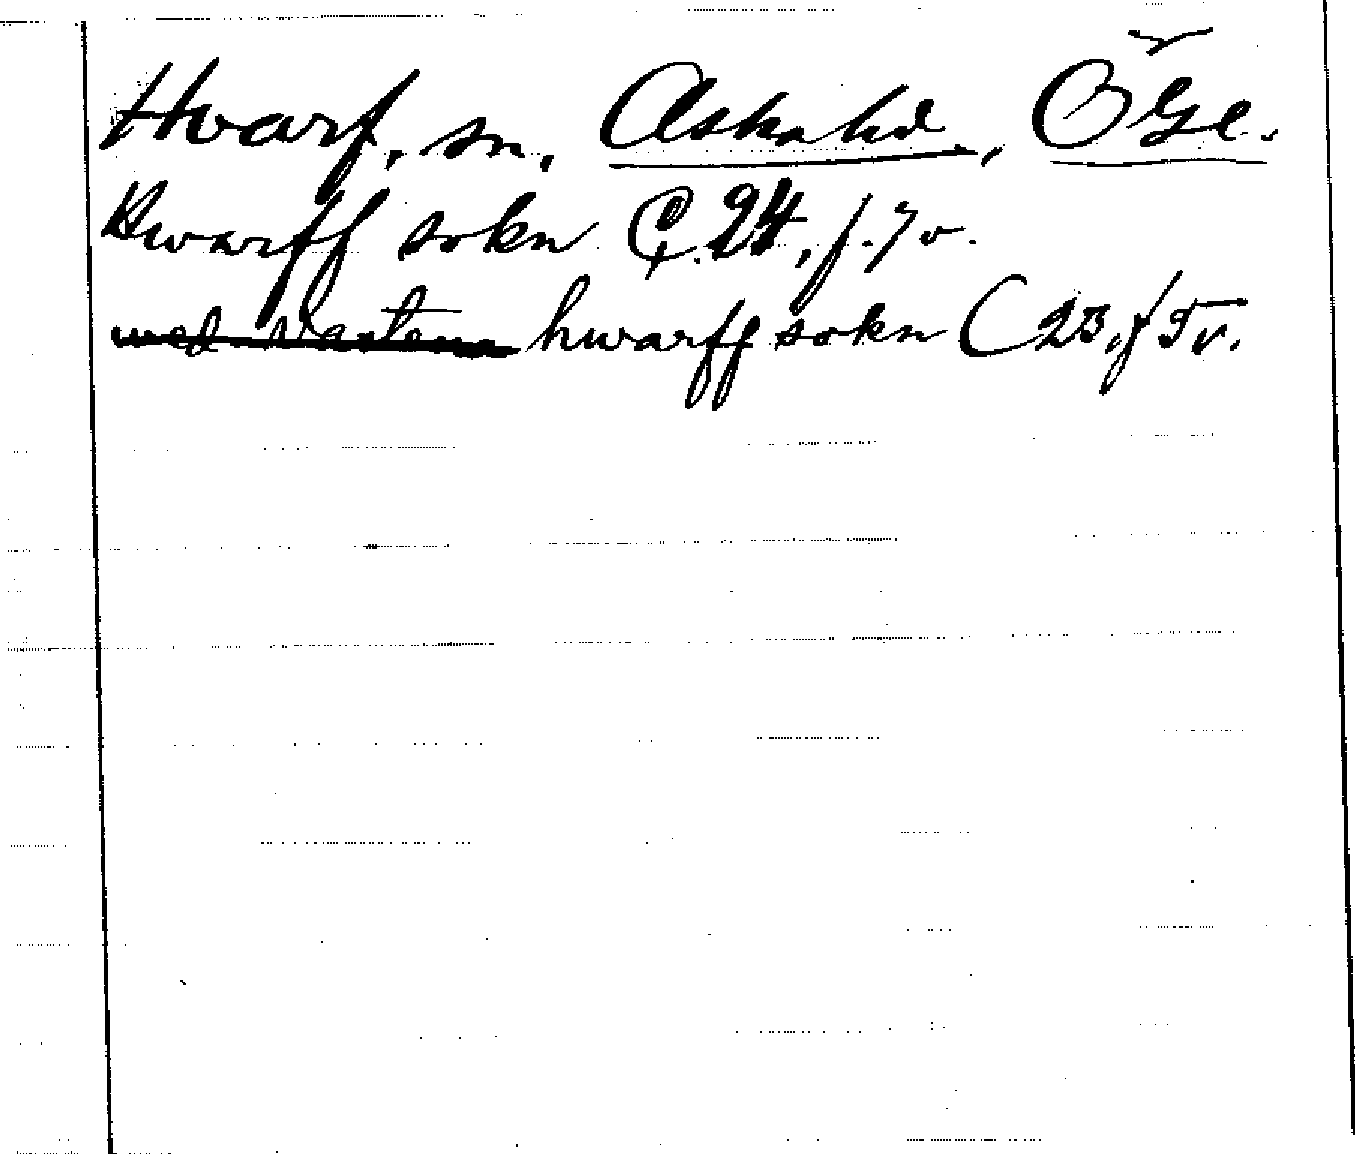 Hwarf, sn, Askahd., ÖGl.
Hwarff sokn C.24, f. 7 v.
med Wastena hwarff sokn C 23, f 5 v.